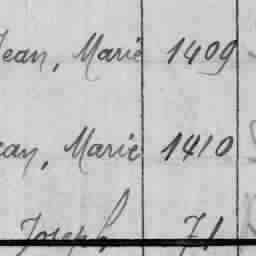 Jean, Marie 1409
ean, Marie 1410
Joseph 71